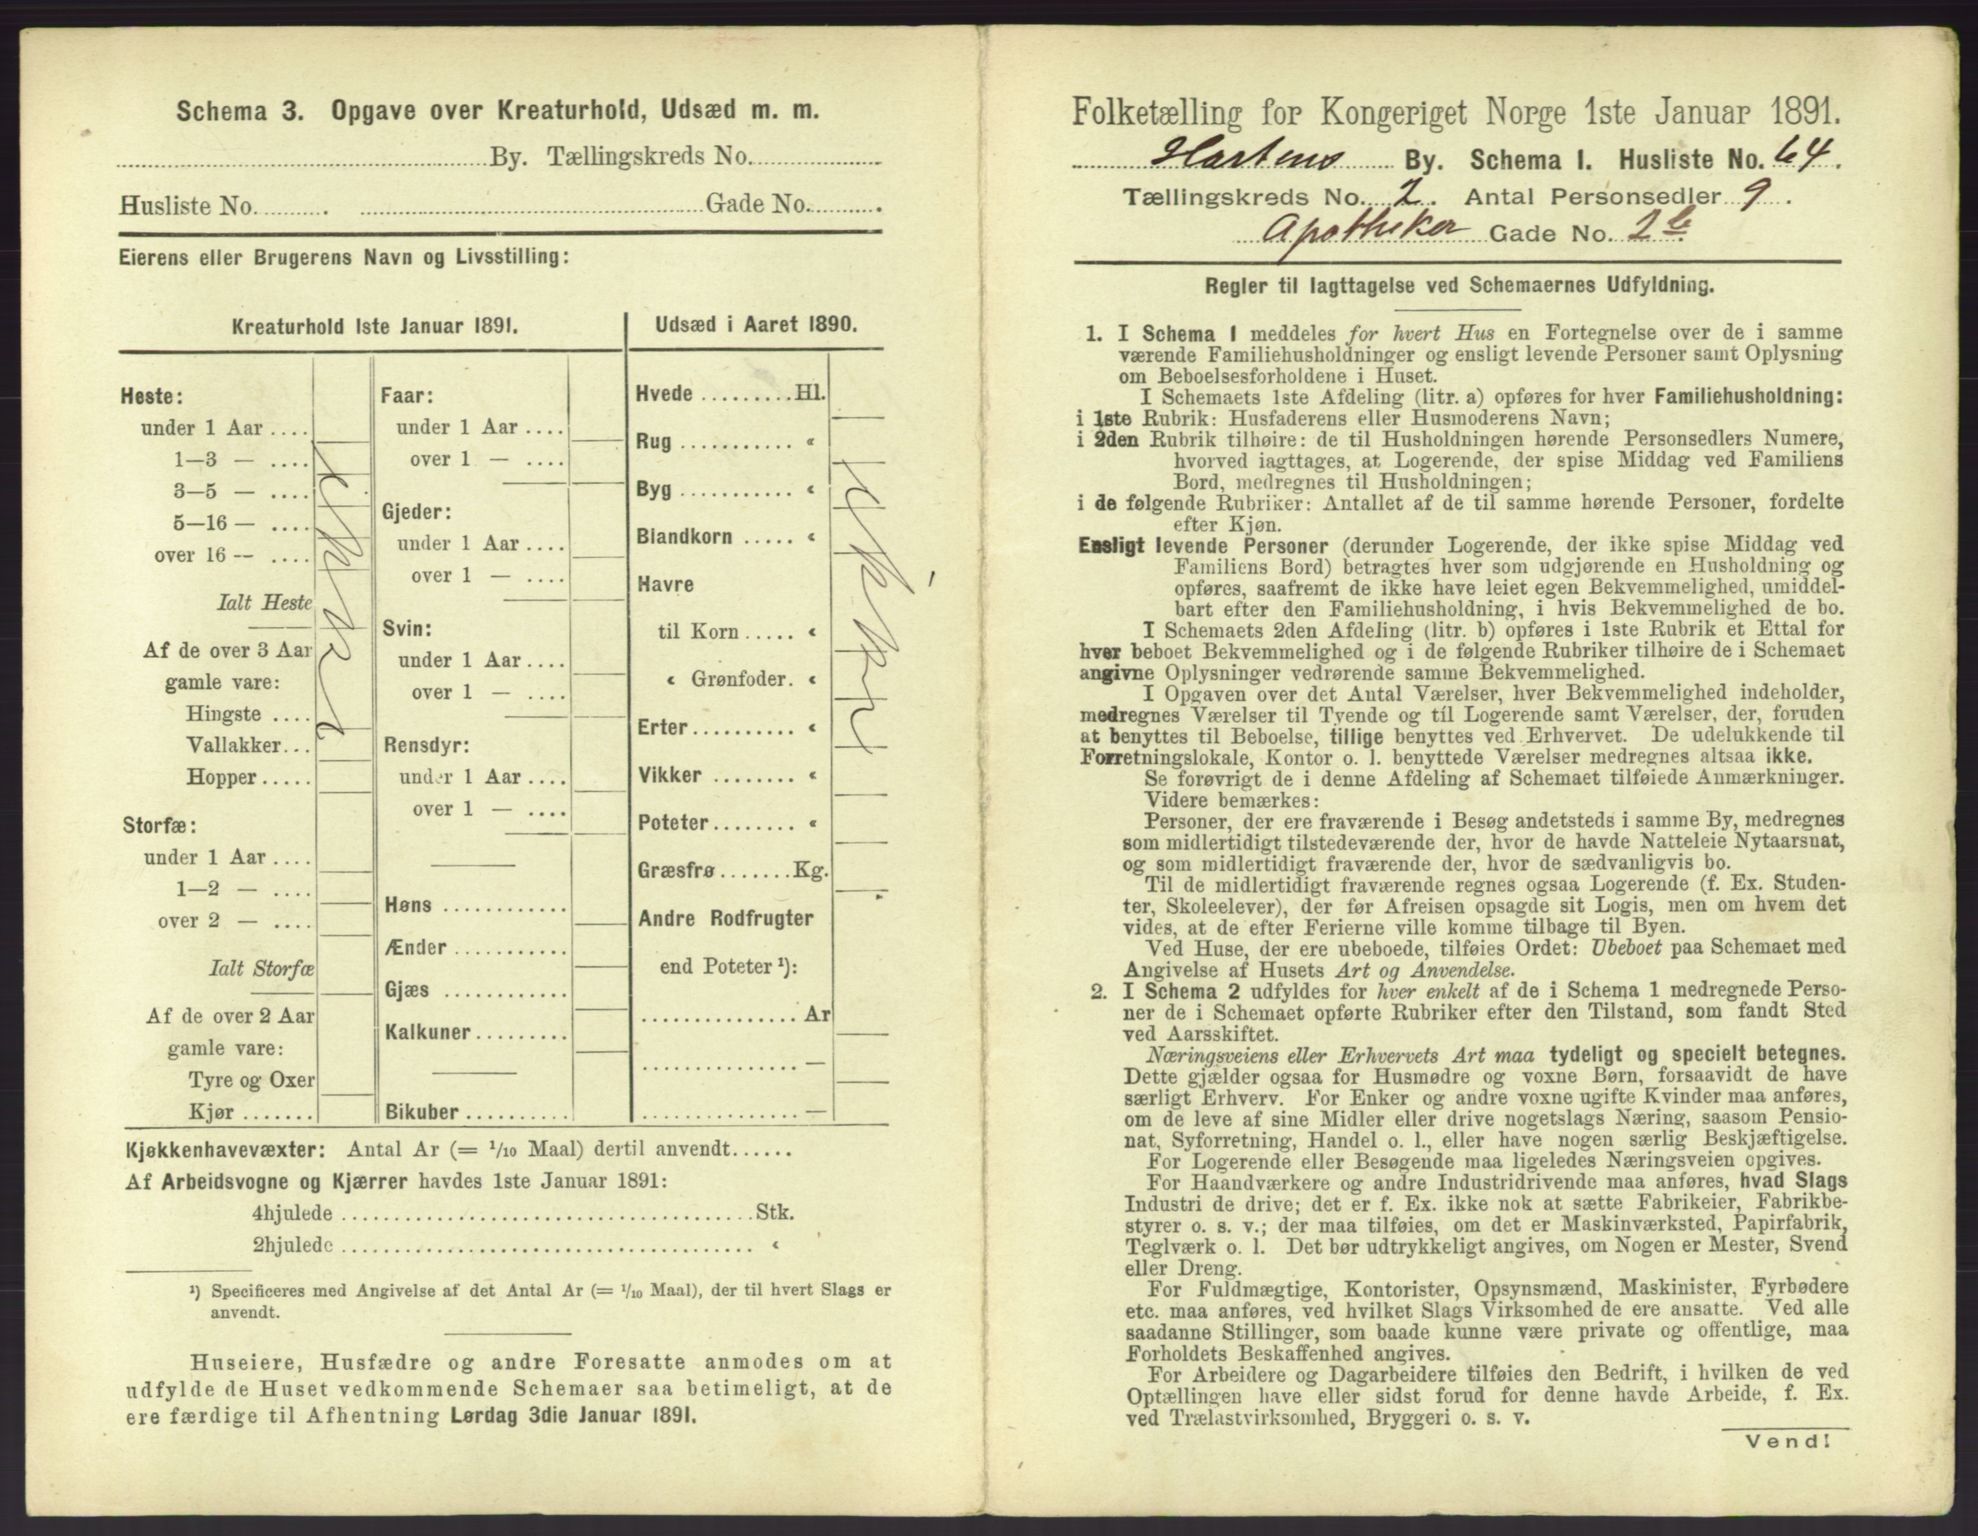 Schema 3. Opgave over Kreaturhold, Udsæd m. m.
By. Tællingskreds No.
Husliste No. Gade No.
Eierens eller Brugerens Navn og Livsstilling:
Kreaturhold 1ste Januar 1891.
Heste:
under 1 Aar ....
1—3 — ....
3—5 — ....
5—16 — ....
over 16 -- ....
Ialt Heste
Af de over 3 Aar
gamle vare:
Hingste ....
Vallakker...
Hopper.....
Storfæ:
under 1 Aar ....
1—2 — ....
over 2 — ....
Ialt Storfæ
Af de over 2 Aar
gamle vare:
Tyre og Oxer
Kjør .......
Faar:
under 1 Aar ....
over 1 — ....
Gjeder:
under 1 Aar ....
over 1 — ....
Svin:
under 1 Aar ....
over 1 — ....
Rensdyr:
under 1 Aar ....
over 1 — ....
Høns ............
Ænder ...........
Gjæs ............
Kalkuner.........
Bikuber ..........
Udsæd i Aaret 1890.
Hvede .........Hl.
Rug ........... «
Byg ........... «
Blandkorn ..... «
Havre
til Korn ..... «
« Grønfoder. «
Erter.......... «
Vikker ........ «
Poteter........ «
Græsfrø.......Kg.
Andre Rodfrugter
end Poteter ¹):
............... Ar
............... —
............... —
Kjøkkenhavevæxter: Antal Ar (= 1/10 Maal) dertil anvendt......
Af Arbeidsvogne og Kjærrer havdes 1ste Januar 1891:
4hjulede ........................................Stk.
2hjulede ........................................ «
¹) Specificeres med Angivelse af det Antal Ar (= 1/10 Maal), der til hvert Slags er
anvendt.
Huseiere, Husfædre og andre Foresatte anmodes om at
udfylde de Huset vedkommende Schemaer saa betimeligt, at de
ere færdige til Afhentning Lørdag 3die Januar 1891.
Folketælling for Kongeriget Norge 1ste Januar 1891.
By. Schema 1. Husliste No. 64.
Tællingskreds No. 2. Antal Personsedler 9.
Apotheker Gade No. 2b.
Regler til Iagttagelse ved Schemaernes Udfyldning.
1. I Schema 1 meddeles for hvert Hus en Fortegnelse over de i samme
værende Familiehusholdninger og ensligt levende Personer samt Oplysning
om Beboelsesforholdene i Huset.
I Schemaets 1ste Afdeling (litr. a) opføres for hver Familiehusholdning:
i 1ste Rubrik: Husfaderens eller Husmoderens Navn;
i 2den Rubrik tilhøire: de til Husholdningen hørende Personsedlers Numere,
hvorved iagttages, at Logerende, der spise Middag ved Familiens
Bord, medregnes til Husholdningen;
i de følgende Rubriker: Antallet af de til samme hørende Personer, fordelte
efter Kjøn.
Ensligt levende Personer (derunder Logerende, der ikke spise Middag ved
Familiens Bord) betragtes hver som udgjørende en Husholdning og
opføres, saafremt de ikke have leiet egen Bekvemmelighed, umiddel-
bart efter den Familiehusholdning, i hvis Bekvemmelighed de bo.
I Schemaets 2den Afdeling (litr. b) opføres i 1ste Rubrik et Ettal for
hver beboet Bekvemmelighed og i de følgende Rubriker tilhøire de i Schemaet
angivne Oplysninger vedrørende samme Bekvemmelighed.
I Opgaven over det Antal Værelser, hver Bekvemmelighed indeholder,
medregnes Værelser til Tyende og til Logerende samt Værelser, der, foruden
at benyttes til Beboelse, tillige benyttes ved Erhvervet. De udelukkende til
Forretningslokale, Kontor o. l. benyttede Værelser medregnes altsaa ikke.
Se forøvrigt de i denne Afdeling af Schemaet tilføiede Anmærkninger.
Videre bemærkes:
Personer, der ere fraværende i Besøg andetsteds i samme By, medregnes
som midlertidigt tilstedeværende der, hvor de havde Natteleie Nytaarsnat,
og som midlertidigt fraværende der, hvor de sædvanligvis bo.
Til de midlertidigt fraværende regnes ogsaa Logerende (f. Ex. Studen-
ter, Skoleelever), der før Afreisen opsagde sit Logis, men om hvem det
vides, at de efter Ferierne ville komme tilbage til Byen.
Ved Huse, der ere ubeboede, tilføies Ordet: Ubeboet paa Schemaet med
Angivelse af Husets Art og Anvendelse.
2. I Schema 2 udfyldes for hver enkelt af de i Schema 1 medregnede Perso-
ner de i Schemaet opførte Rubriker efter den Tilstand, som fandt Sted
ved Aarsskiftet.
Næringsveiens eller Erhvervets Art maa tydeligt og specielt betegnes.
Dette gjælder ogsaa for Husmødre og voxne Børn, forsaavidt de have
særligt Erhverv. For Enker og andre voxne ugifte Kvinder maa anføres,
om de leve af sine Midler eller drive nogetslags Næring, saasom Pensio-
nat, Syforretning, Handel o. l., eller have nogen særlig Beskjæftigelse.
For Logerende eller Besøgende maa ligeledes Næringsveien opgives.
For Haandværkere og andre Industridrivende maa anføres, hvad Slags
Industri de drive; det er f. Ex. ikke nok at sætte Fabrikeier, Fabrikbe-
styrer o. s. v.; der maa tilføies, om det er Maskinværksted, Papirfabrik,
Teglværk o. l. Det bør udtrykkeligt angives, om Nogen er Mester, Svend
eller Dreng.
For Fuldmægtige, Kontorister, Opsynsmænd, Maskinister, Fyrbødere
etc. maa anføres, ved hvilket Slags Virksomhed de ere ansatte. Ved alle
saadanne Stillinger, som baade kunne være private og offentlige, maa
Forholdets Beskaffenhed angives.
For Arbeidere og Dagarbeidere tilføies den Bedrift, i hvilken de ved
Optællingen have eller sidst forud for denne havde Arbeide, f. Ex.
ved Trælastvirksomhed, Bryggeri o. s. v.
Vend!